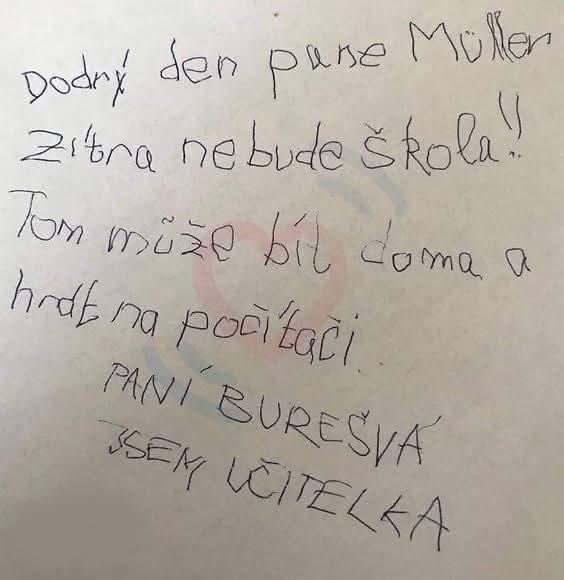 Dodrý den pane Müller
zítra nebude škola!!
Tom může bít doma a
hrdt na počítači.
PANÍ BUREŠVÁ
JSEM UČITELKA